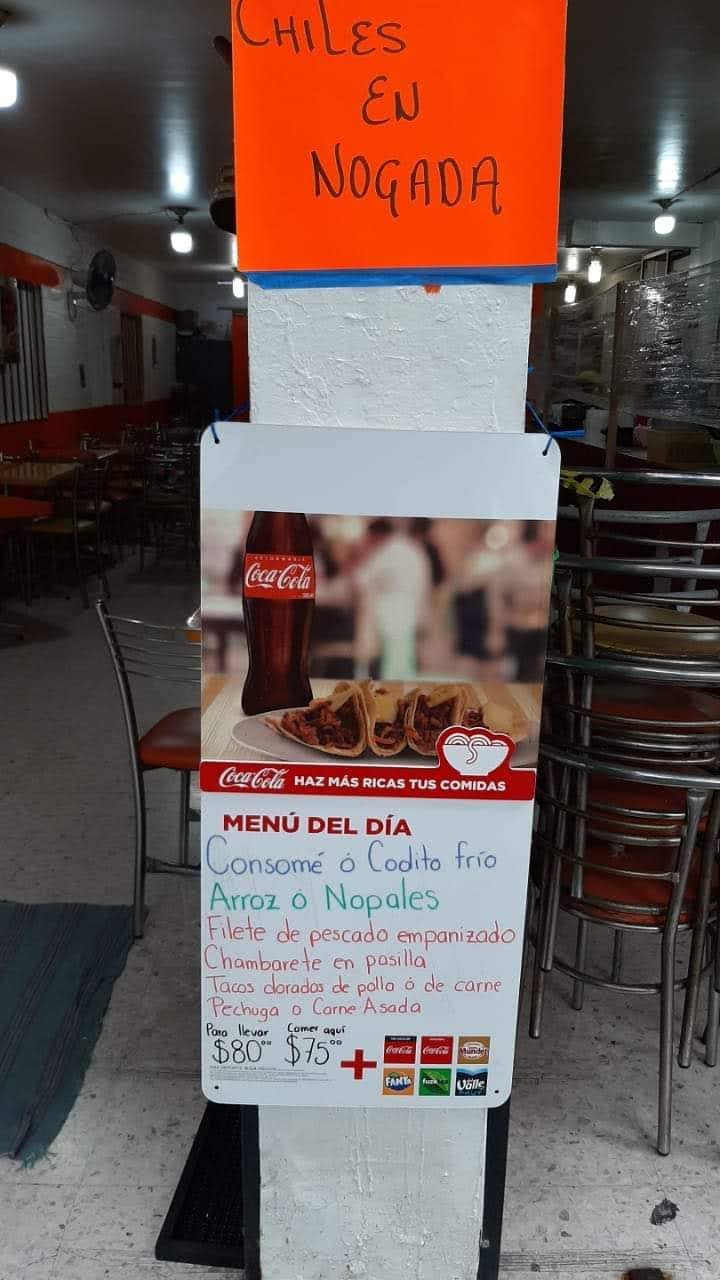 CHILES
EN
NOGADA
Coca-Cola
Coca-Cola HAZ MÁS RICAS TUS COMIDAS
MENÚ DEL DÍA
Consomé ó Codito frío
Arroz ó Nopales
Filete de pescado empanizado
Chambarete en pasilla
Tacos dorados de pollo ó de carne
Pechuga o Carne Asada
Para llevar Comer aquí
$80⁰⁰ $75⁰⁰ +
Coca-Cola Coca-Cola Mundet
FANTA fuze Valle